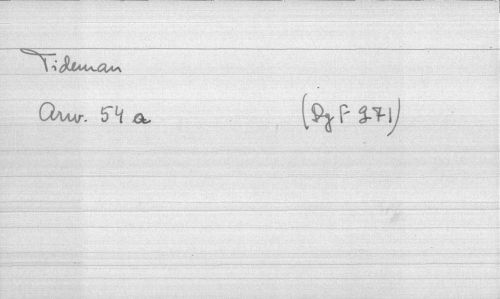 Tideman
Arw. 54 a
(DgF 271)